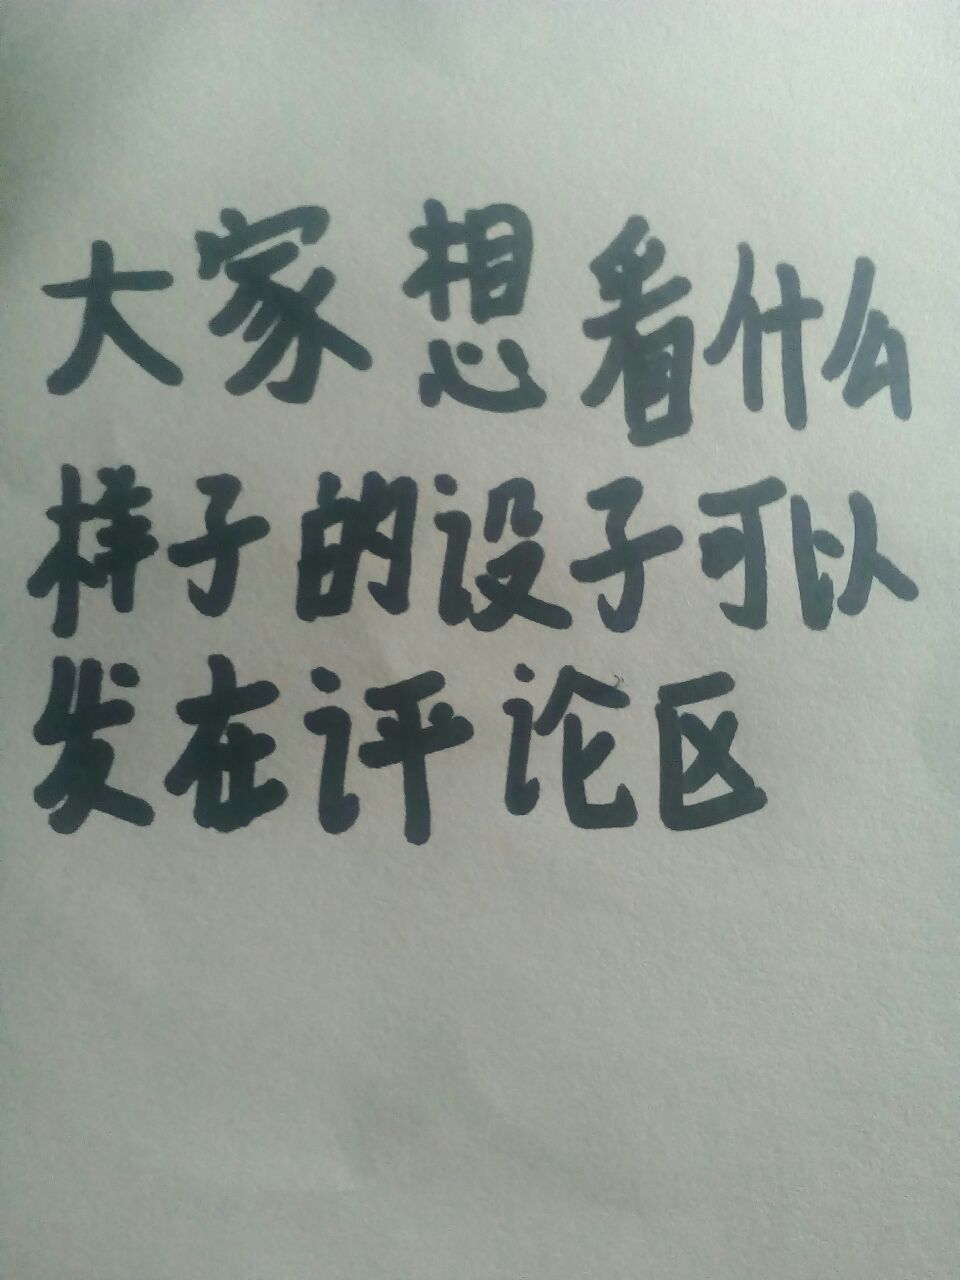 大家想看什么
样子的设子可以
发在评论区